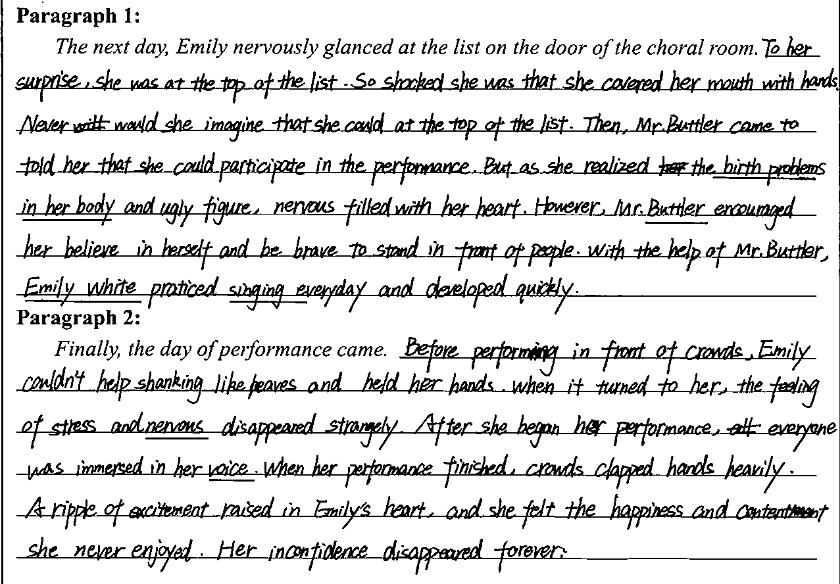 Paragraph 1:
The next day, Emily nervously glanced at the list on the door of the choral room. To her
surprise, she was at the top of the list. So shocked she was that she covered her mouth with hands.
Never will would she imagine that she could at the top of the list. Then, Mr. Buttler came to
told her that she could participate in the performance. But as she realized her the birth problems
in her body and ugly figure, nervous filled with her heart. However, Mr. Buttler encouraged
her believe in herself and be brave to stand in front of people. With the help of Mr. Buttler,
Emily White praticed singing everyday and developed quickly.
Paragraph 2:
Finally, the day of performance came. Before performing in front of crowds, Emily
couldn't help shanking like heaves and held her hands. When it turned to her, the feeling
of stress and nervous disappeared strangely. After she began her performance, all everyone
was immersed in her voice. When her performance finished, crowds clapped hands heavily.
A ripple of excitement raised in Emily's heart, and she felt the happiness and contentment
she never enjoyed. Her inconfidence disappeared forever.